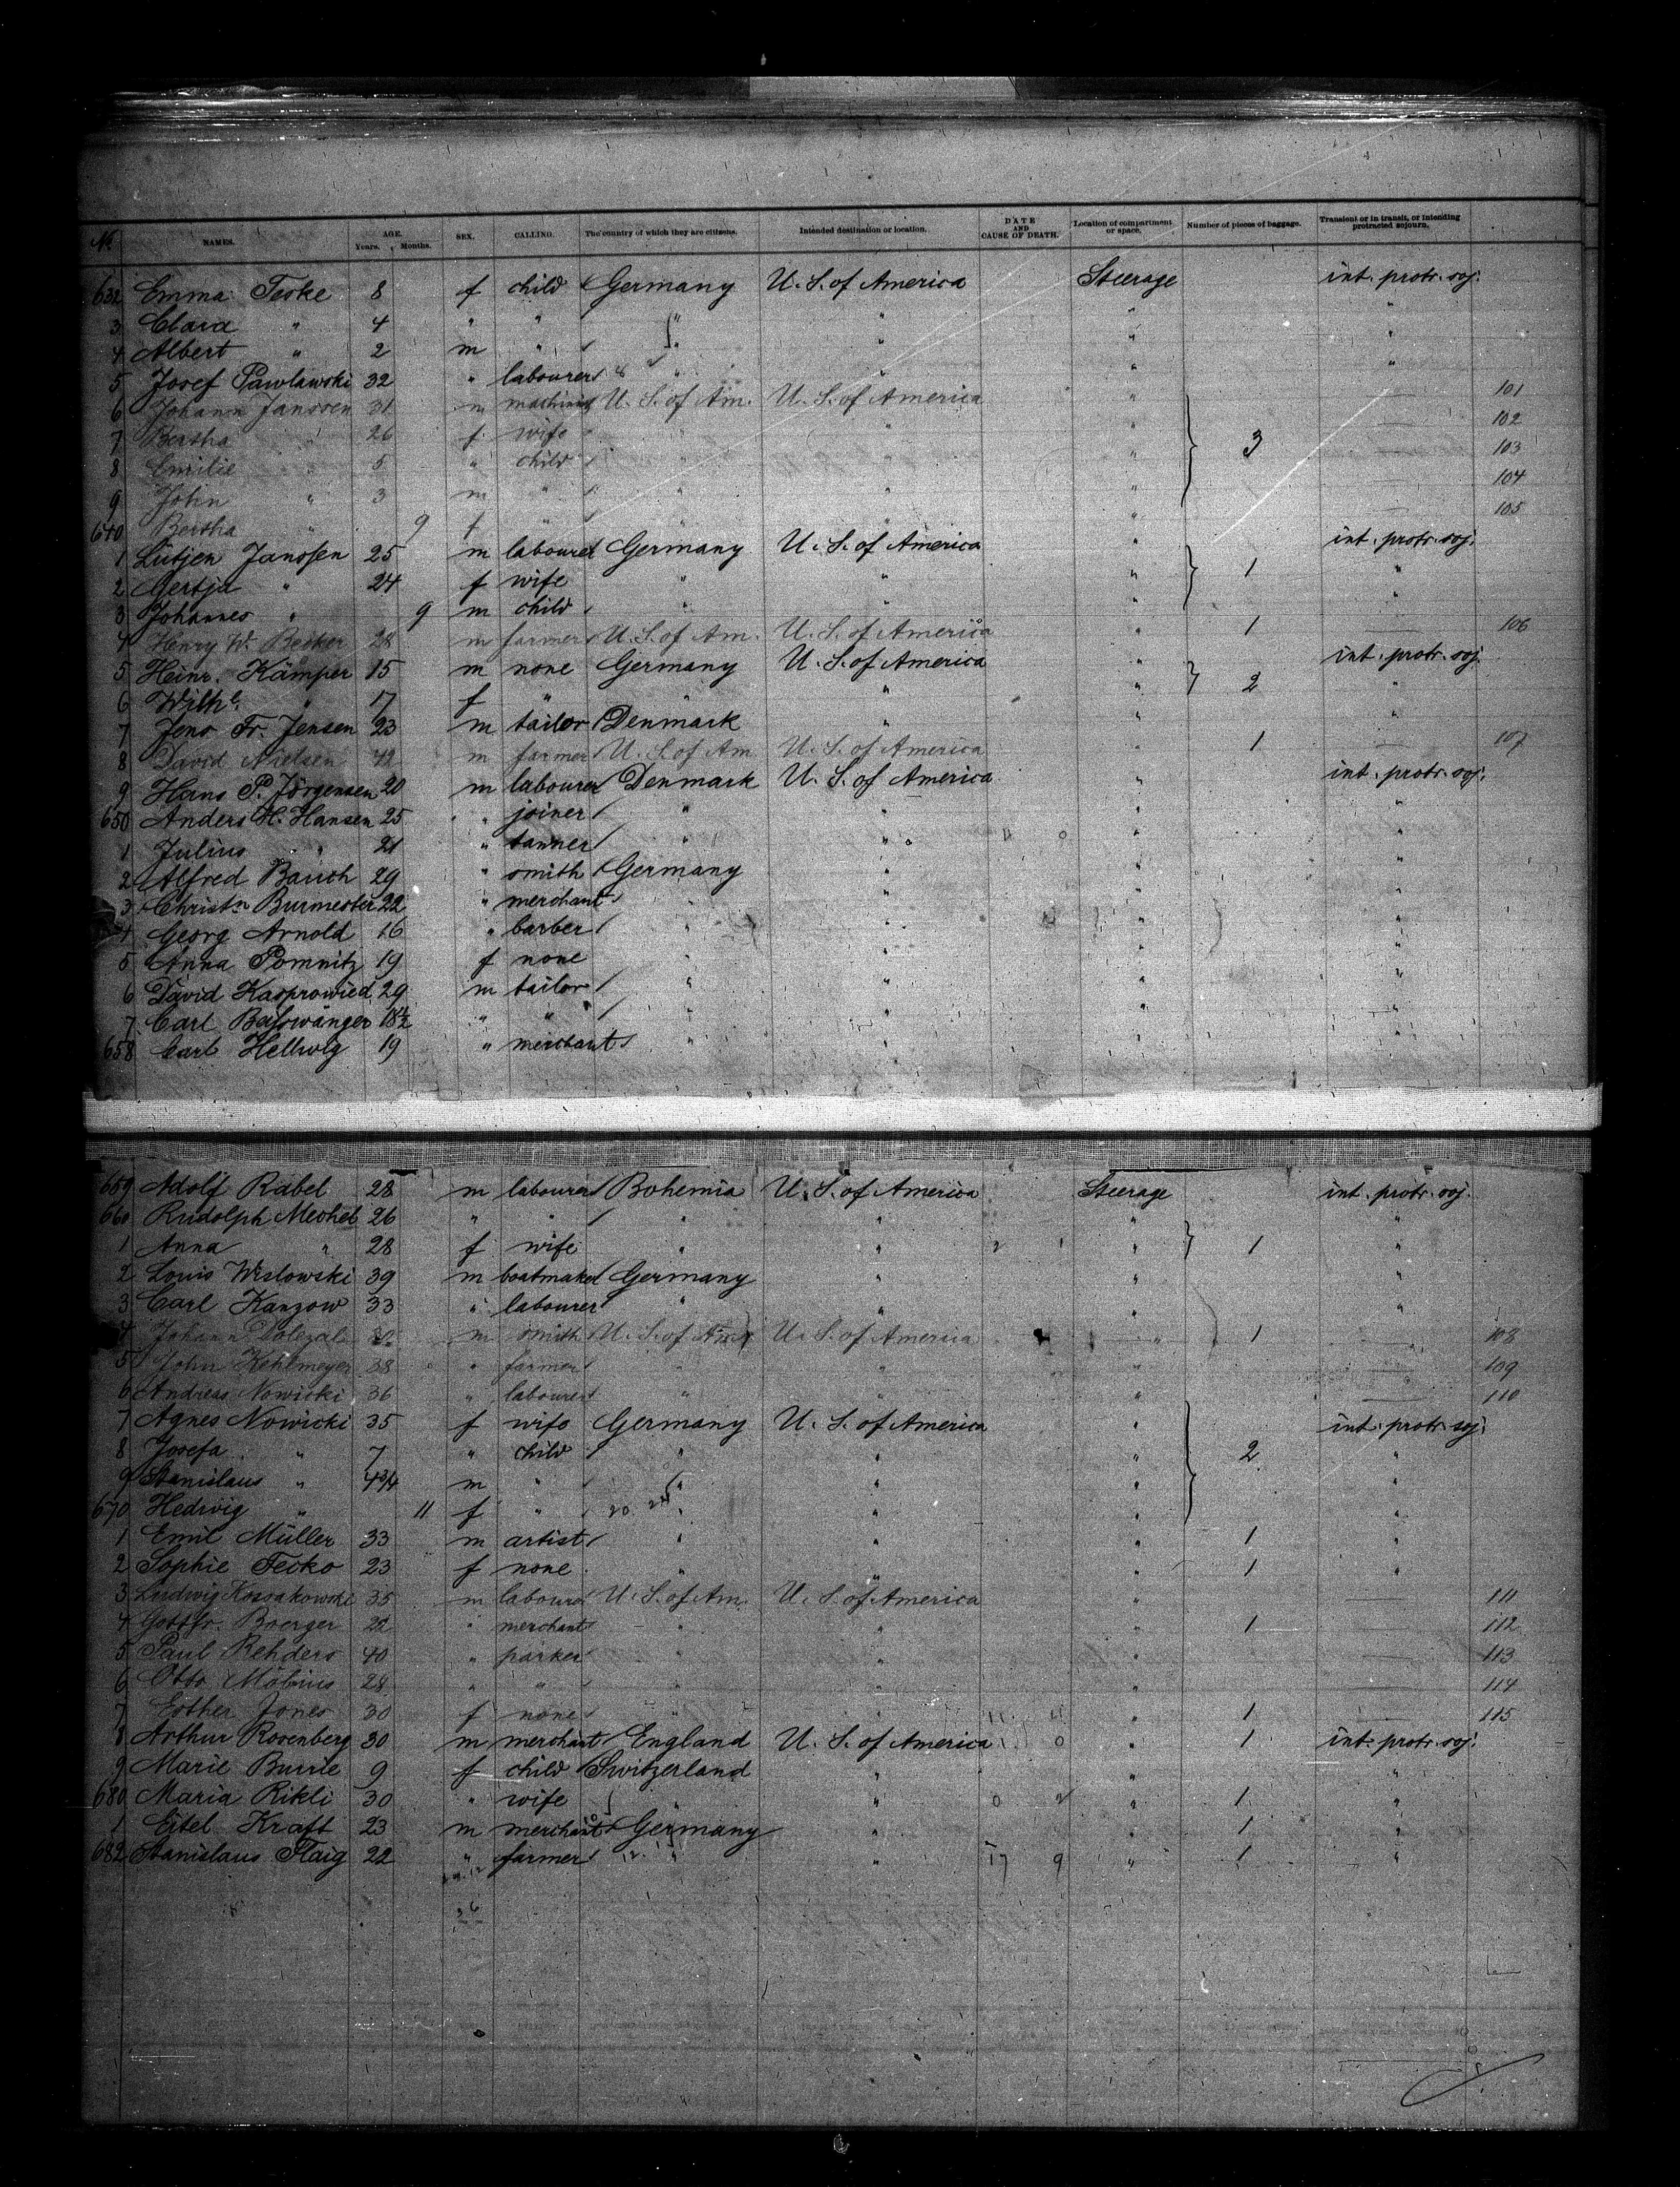 No. NAMES. AGE. Years. Months. SEX. CALLING. The country of which they are citizens. Intended destination or location. DATE AND CAUSE OF DEATH. Location of compartment or space. Number of pieces of baggage. Transient or in transit, or intending protracted sojourn.
632 Emma Teske 8 f child Germany U. S. of America Steerage int. protr. soj.
3 Clara " 4 " " " " " "
4 Albert " 2 m " " " " "
5 Josef Pawlawski 32 " labourer " " " "
6 Johann Janssen 31 m machinist U. S. of Am. U. S. of America " 101
7 Bertha " 26 f wife " " " 102
8 Emilie " 5 " child " " " 3 103
9 John " 3 m " " " " 104
640 Bertha " 9 f " " " " 105
1 Lütjen Janssen 25 m labourer Germany U. S. of America " int. protr. soj.
2 Gertja " 24 f wife " " " 1 "
3 Johannes " 9 m child " " " "
4 Henry W. Becker 28 m farmer U. S. of Am. U. S. of America " 1 106
5 Heinr. Kämper 15 m none Germany U. S. of America " int. protr. soj.
6 Wilhe. " 17 f " " " " 2 "
7 Jens Fr. Jensen 23 m tailor Denmark " " "
8 David Nielsen 42 m farmer U. S. of Am. U. S. of America " 1 107
9 Hans P. Jörgensen 20 m labourer Denmark U. S. of America " int. protr. soj.
650 Anders H. Hansen 25 " joiner " " " "
1 Julius " 21 " tanner " " " "
2 Alfred Bauch 29 " smith Germany " " "
3 Christn Burmester 22 " merchant " " " "
4 Georg Arnold 16 " barber " " " "
5 Anna Pomnitz 19 f none " " " "
6 David Kasprowied 29 m tailor " " " "
7 Carl 18 1/2 " " " " " "
658 Carl Hellwig 19 " merchant " " " "
659 Adolf Rabel 28 m labourer Bohemia U. S. of America Steerage int. protr. soj.
660 Rudolph Mechel 26 " " " " " "
1 Anna " 28 f wife " " " 1 "
2 Louis Wislowski 39 m boatmaker Germany " " "
3 Carl Kanzow 33 " labourer " " " "
4 Johann Dolezal m smith U. S. of Am. U. S. of America " 1 108
5 John Kehlmeyer 38 " farmer " " " 109
6 Andreas Nowicki 36 " labourer " " " 110
7 Agnes Nowicki 35 f wife Germany U. S. of America " int. protr. soj.
8 Josefa " 7 " child " " " 2 "
9 Stanislaus " 4 3/4 m " " " " "
670 Hedwig " 11 f " " " " "
1 Emil Müller 33 m artist " " " 1 "
2 Sophie Tecko 23 f none " " " 1 "
3 Ludwig Kossakowski 35 m labourer U. S. of Am. U. S. of America " 111
4 Gottfr. Boerger 22 " merchant " " " 1 112
5 Paul Rehders 40 " parker " " " 113
6 Otto Möbius 28 " " " " " 114
7 Esther Jones 30 f none " " " 1 115
8 Arthur Rosenberg 30 m merchant England U. S. of America " 1 int. protr. soj.
9 Marie Burrle 9 f child Switzerland " " "
680 Maria Rikli 30 " wife " " " 1 "
1 Eitel Kraft 23 m merchant Germany " " 1 "
682 Stanislaus Flaig 22 " farmer " " 17 9 " 1 "